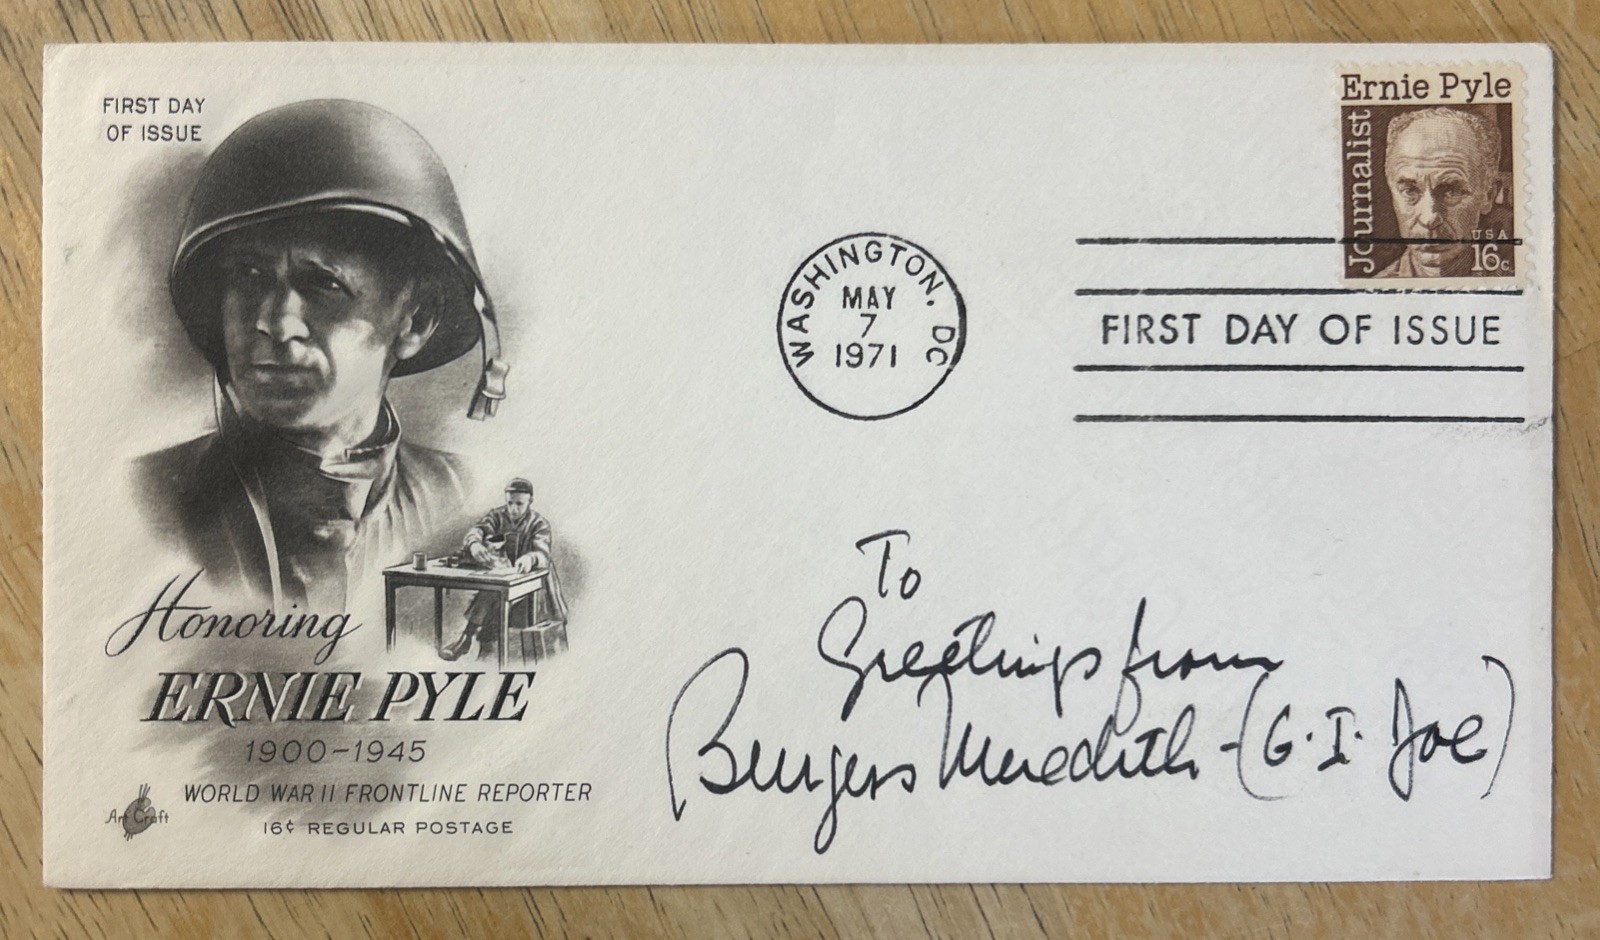 FIRST DAY
OF ISSUE
Honoring
ERNIE PYLE
1900-1945
WORLD WAR II FRONTLINE REPORTER
16¢ REGULAR POSTAGE
Art Craft
WASHINGTON, DC
MAY
7
1971
Ernie Pyle
Journalist
USA
16c
FIRST DAY OF ISSUE
To
Greetings from
Burgess Meredith - (G.I. Joe)